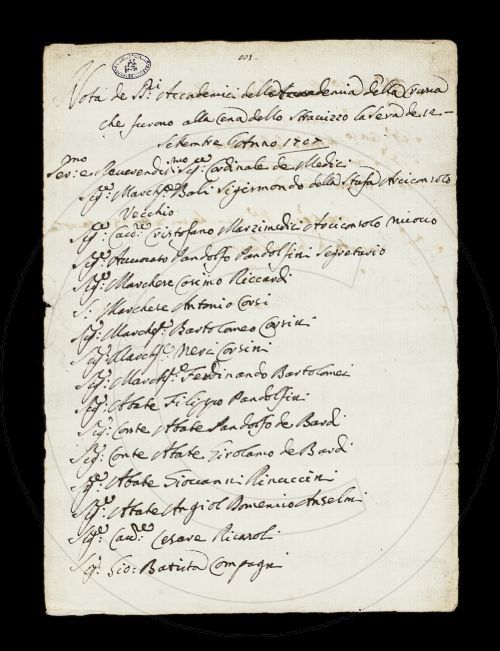 Nota de SS:ri Accademici della Accademia della Crusca
che furono alla Cena dello Stravizzo la Sera de 12
Settembre l'Anno 1707
Ser:mo e Reverendis:mo Sig:re Cardinale de Medici
Sig:re March:e Balì Sigismondo della Stufa Arciconsolo
Vecchio
Sig:re Cav:re Cristofano Marzimedici Arciconsolo nuovo
Sig:re Pandolfo Pandolfini Segretario
Sig:re Marchese Cosimo Riccardi
S: Marchese Antonio Corsi
Sig:re March:e Bartolomeo Corsini
Sig:re March:e Neri Corsini
Sig:re March:e Ferdinando Bartolomei
Sig:re Abate Filippo Pandolfini
Sig: Conte Abate Pandolfo de Bardi
Sig: Conte Abate Girolamo de Bardi
Sig:re Abate Giovanni Rinuccini
Sig:re Abate Angiol Domenico Anselmi
Sig:re Cav:re Cesare Ricasoli
Sig:re Gio: Batista Compagni